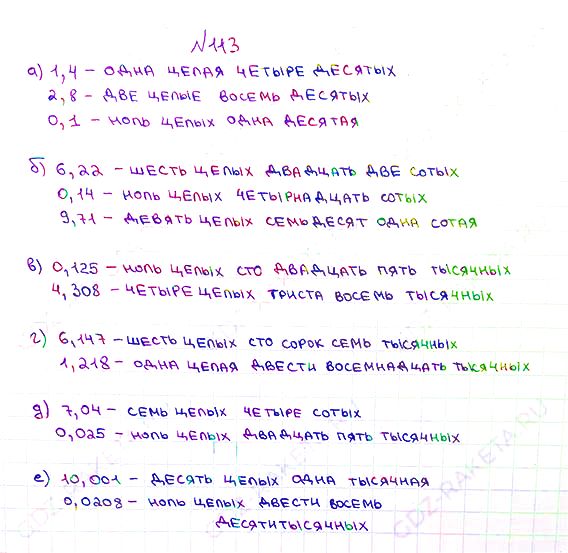 №113
а) 1,4 – одна целая четыре десятых
2,8 – две целые восемь десятых
0,1 – ноль целых одна десятая
б) 6,22 – шесть целых двадцать две сотых
0,14 – ноль целых четырнадцать сотых
9,71 – девять целых семьдесят одна сотая
в) 0,125 – ноль целых сто двадцать пять тысячных
4,308 – четыре целых триста восемь тысячных
г) 6,147 – шесть целых сто сорок семь тысячных
1,218 – одна целая двести восемнадцать тысячных
д) 7,04 – семь целых четыре сотых
0,025 – ноль целых двадцать пять тысячных
е) 10,001 – десять целых одна тысячная
0,0208 – ноль целых двести восемь
десятитысячных
GDZ-RAKETA.RU